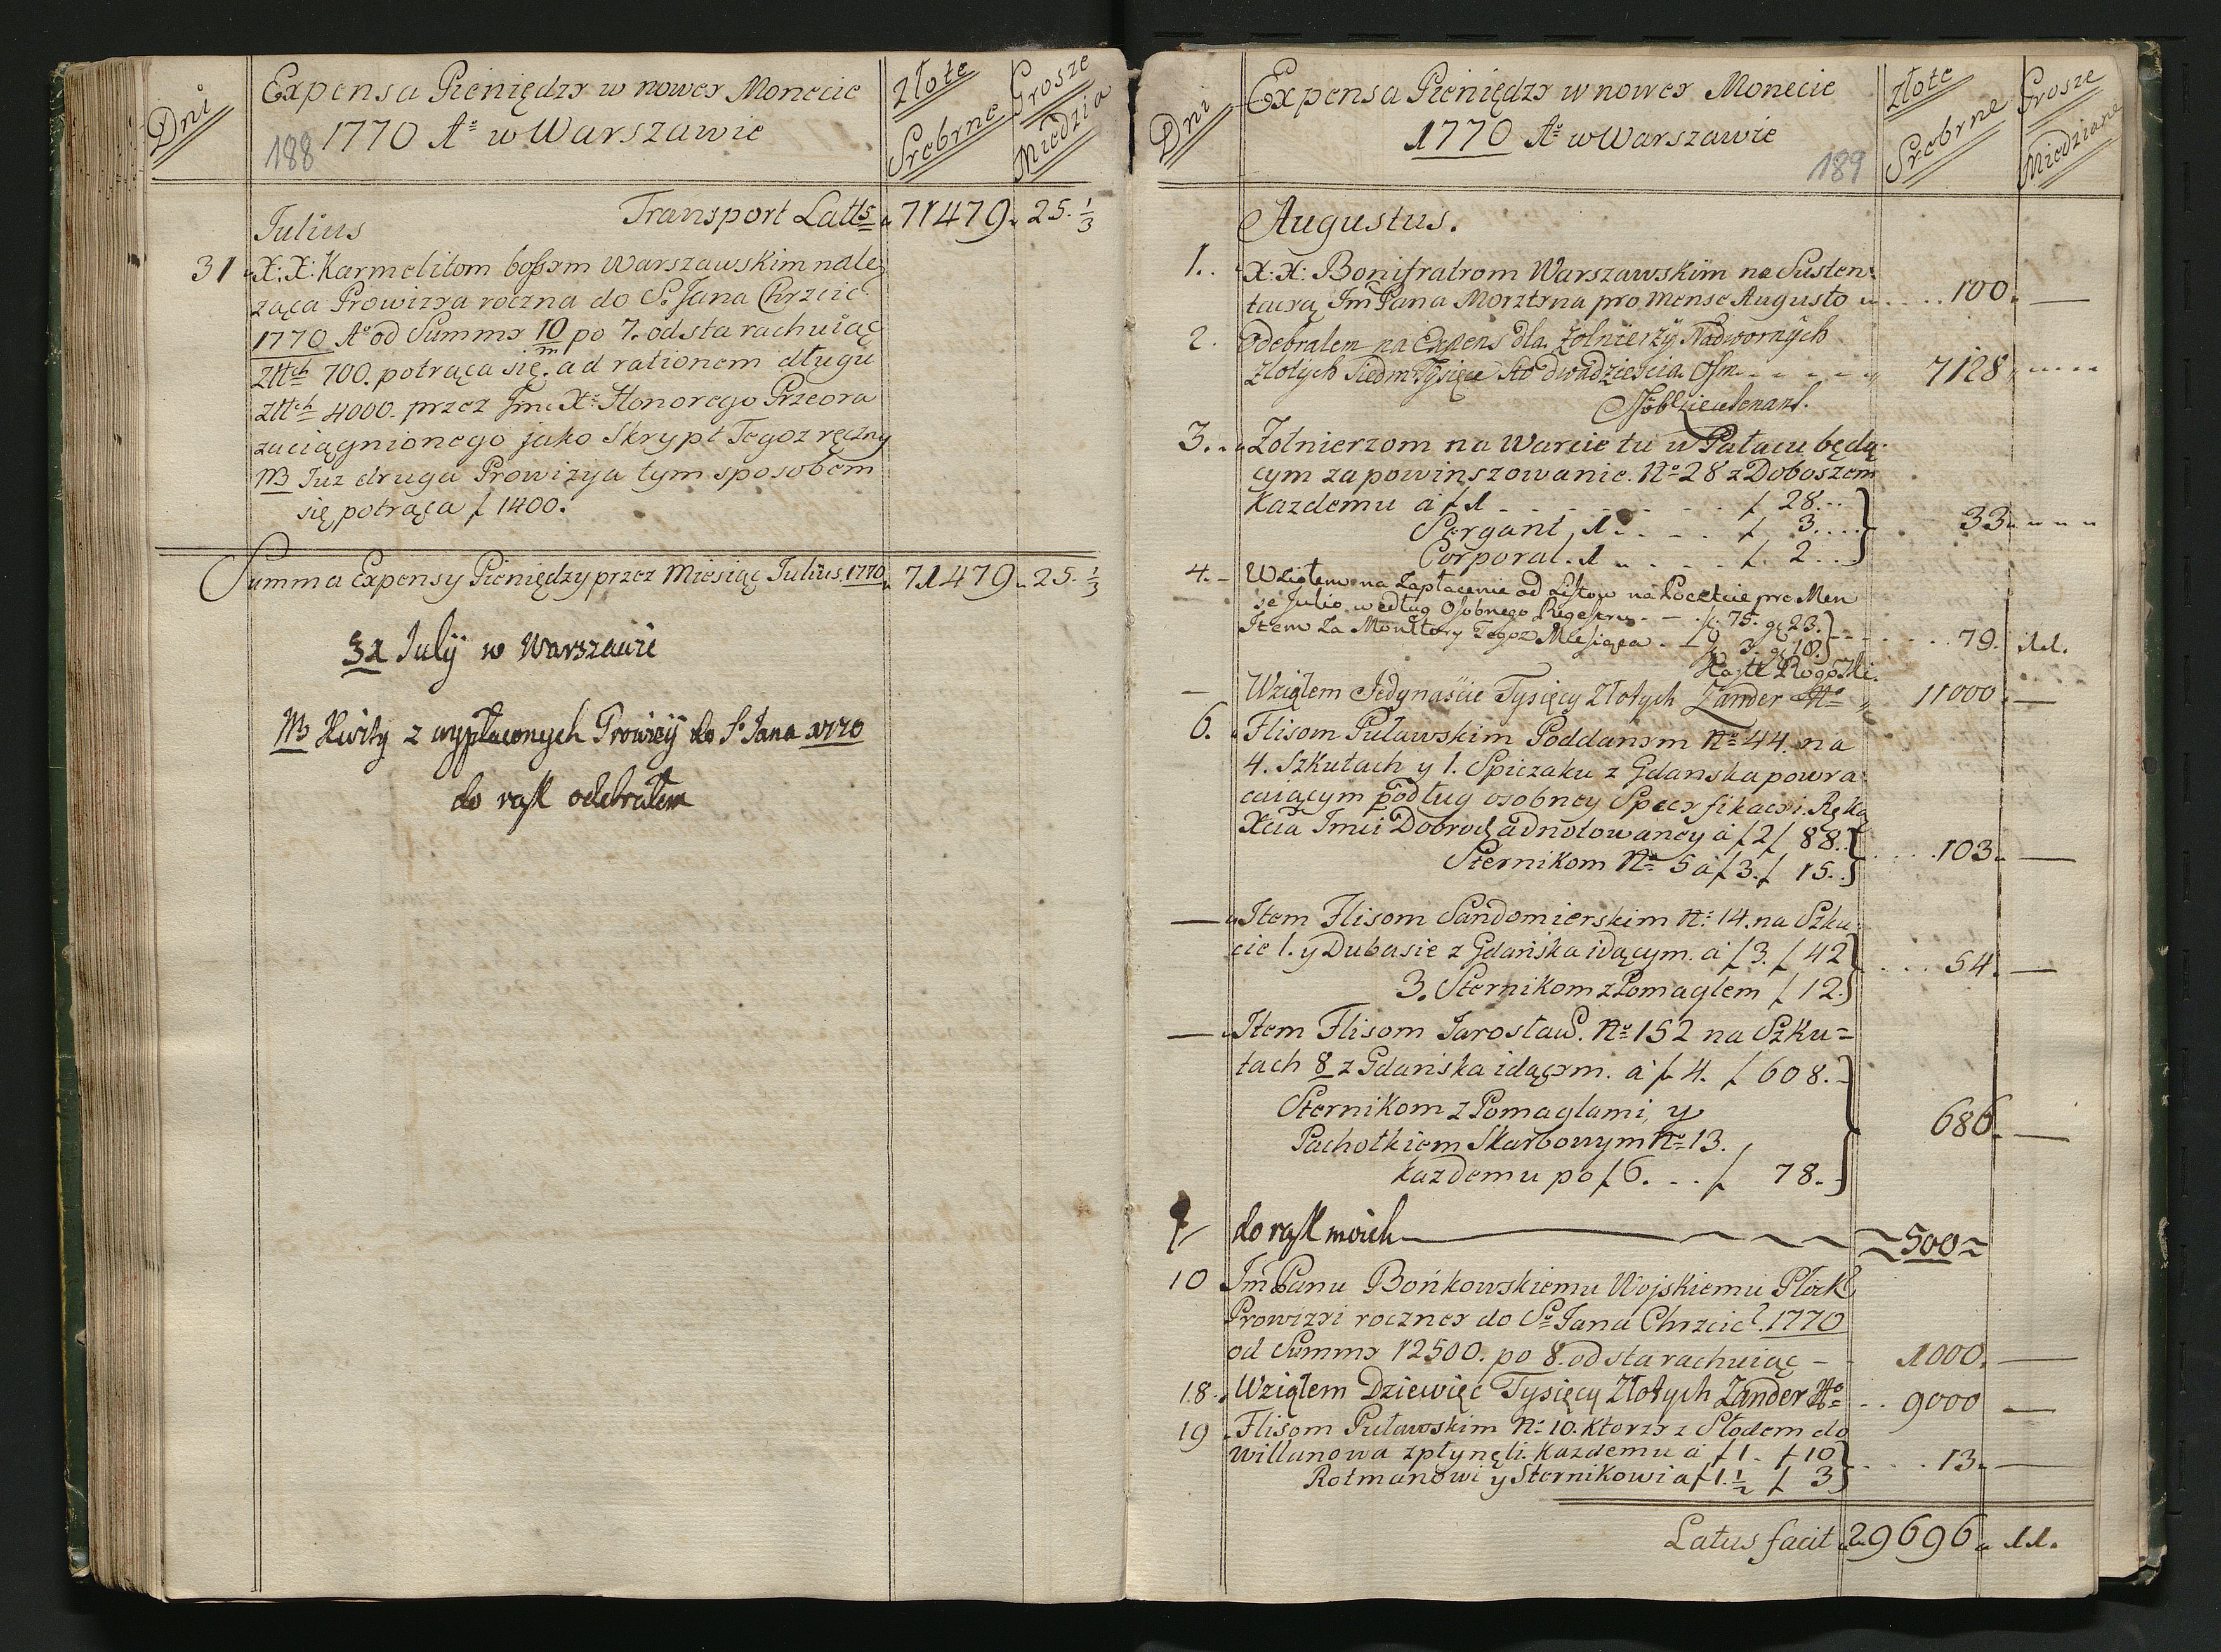 Dni
Expensa Pieniędzy w nowey Monecie
1770 Ao w Warszawie
188
Złote Srebrne
Grosze Miedzia
Transport Latts 71479. 25. 1/3
Julius
31 X: X: Karmelitom bossym Warszawskim nale
żąca Prowizya roczna do S. Jana Chrzcic.
1770 Ao od Summy 10/m po 7. od sta rachuiąc
Złtch 700. potrąca się. ad rationem długu
Złtch 4000. przez Jmci Xa Honorego Przeora
zaciągnionego jako Skrypt Tegoz ręczny
NB Juz druga Prowizya tym sposobem
się potrąca f 1400.
Summa Expensy Pieniędzy przez Miesiąc Julius 1770 71479. 25. 1/3
31 July w Warszawie
NB Kwity z wypłaconych Prowizij do S Jana 1770
do rąk odebrałem
Dni
Expensa Pieniędzy w nowey Monecie
1770 Ao w Warszawie
189
Złote Srebrne
Grosze Miedziane
Augustus.
1. X: X: Bonifratrom Warszawskim na Susten=
tacyą Jm Pana Morztyna pro Mense Augusto 100. —
2. Odebrałem na Expens dla Zołnierzy Nadwornych
Złotych Siedm Tysięcy Sto dwadzieścia Osm 7128
Lieutenant.
3. Zołnierzom na Warcie tu w Pałacu będą=
cym za powinszowanie. No 28 z Doboszem
Kazdemu a f 1 f 28
Sergant, 1. f 3. 33
Corporal. 1 f. 2
4. Wziołem na Zapłacenie od Listow na Poczcie pro Men
se Julio według Osobnego Regestru f. 75. g 23.
Item Za Monitory Tegoz Miesiąca f 3. g 10. 79. 11.
— Wziąłem Jedynaście Tysięcy Złotych Zander 11000. —
6. Flisom Puławskim Poddanym No 44. na
4. Szkutach y 1. Spiczaku z Gdanska powra
caiącym podług osobney Specyfikacyi. Ręką
Xcia Jmci Dobrodz adnotowaney a f 2 f 88.
Sternikom No 5 a f 3. f 15. 103. —
— Item Flisom Sandomierskim No 14. na Szku
cie 1. y Dubasie z Gdańska idącym. a f 3. f 42
3. Sternikom z Pomaglem f 12. 54. —
— Item Flisom Jarosław. No 152 na Szku=
tach 8 z Gdańska idącym. a f 4. f 608.
Sternikom z Pomaglami, y
Pachołkiem Skarbowym No 13. 686. —
kazdemu po f 6. f 78.
do rąk moich 500
10 Jm Panu Bońkowskiemu Wojskiemu Płock
Prowizyi roczney do So Jana Chrzcic. 1770
od Summy 12500. po 8. od sta rachuiąc 1000. —
18. Wziąłem Dziewięć Tysięcy Złotych Zander 9000 —
19 Flisom Puławskim No 10. ktorzy z Słodem do
Willanowa zpłynęli. kazdemu a f 1. f 10
Rotmanowi y Sternikowi a f 1. 1/2 f 3 13. —
Latus facit 29696. 11.